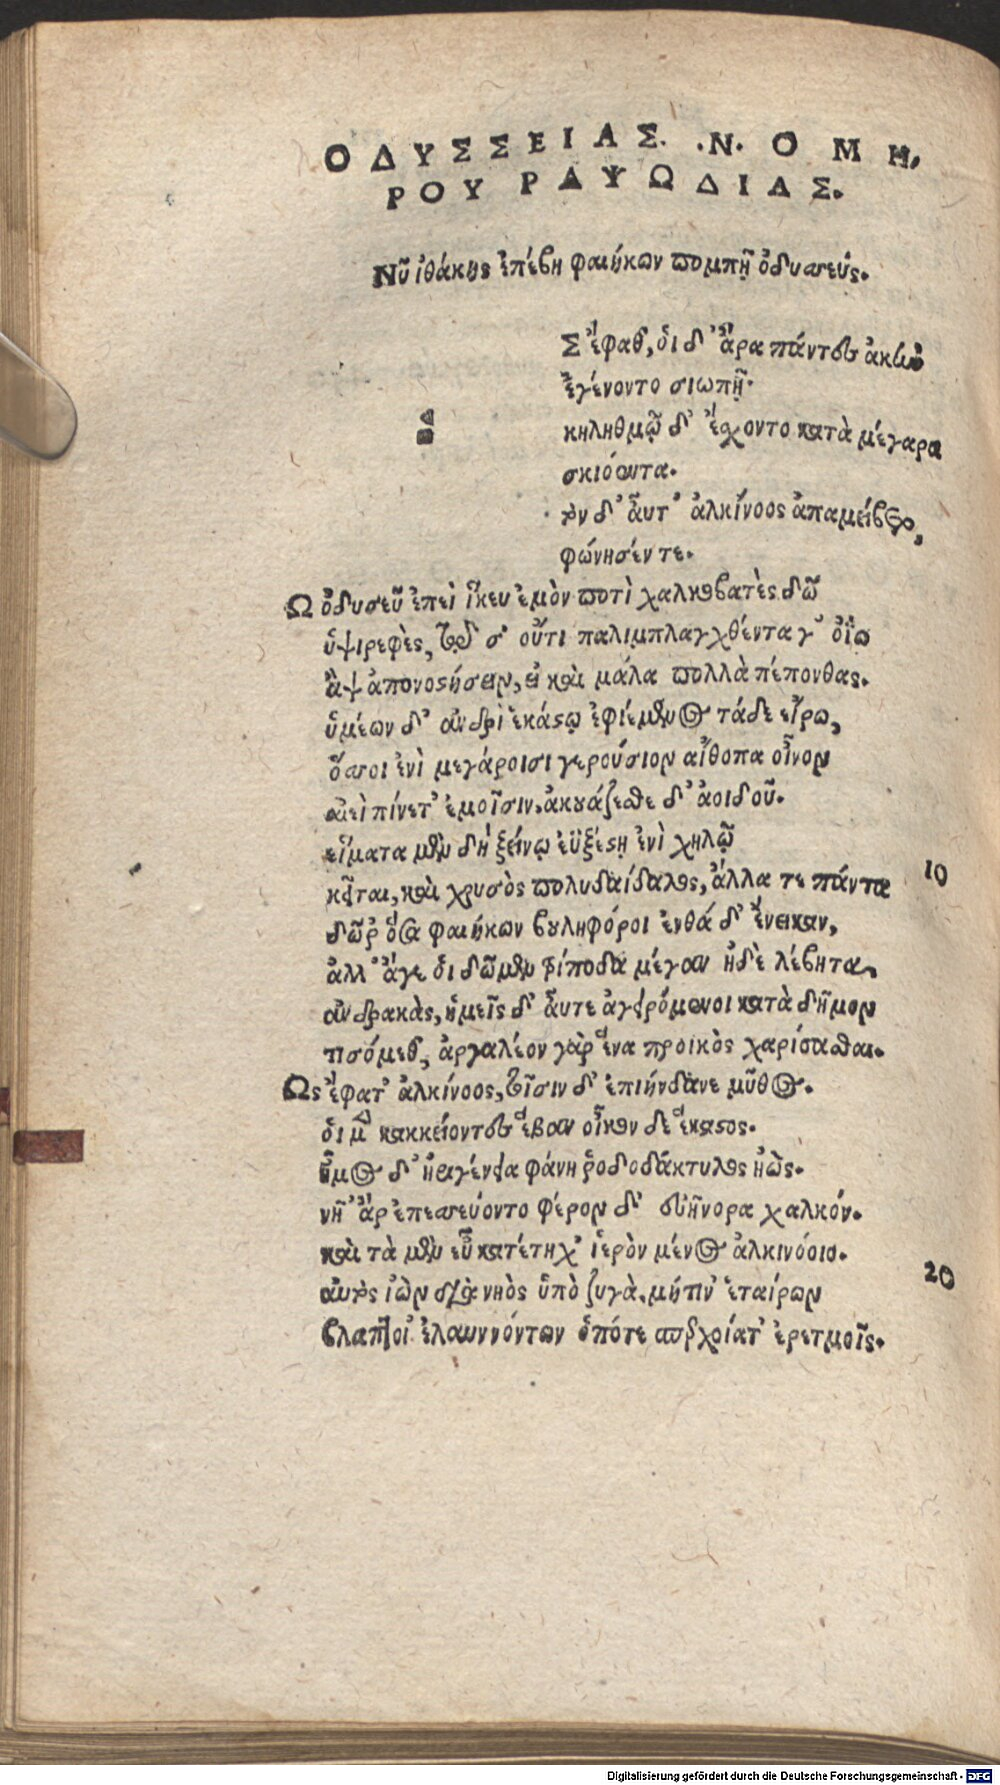 ΟΔΥΣΣΕΙΑΣ. .Ν. ΟΜΗ,
ΡΟΥ ΡΑΨΩΔΙΑΣ.
Νῦ ἰθάκης ἐπέβη φαιήκων πομπῇ ὀδυσσεύς.
Σ ἔφαθ, ὁι δ' ἄρα πάντες ἀκὴν
ἐγένοντο σιωπῇ.
κηληθμῷ δ' ἔσχοντο κατὰ μέγαρα
σκιόεντα.
τὸν δ' αὖτ' ἀλκίνοος ἀπαμείβετο,
φώνησέν τε.
Ω ὀδυσεῦ ἐπεὶ ἵκευ ἐμὸν ποτὶ χαλκοβατὲς δῶ
ὑψιρεφὲς, τῷ σ' οὔτι παλιμπλαγχθέντα γ' ὀΐω
ἂψ ἀπονοστήσειν, εἰ καὶ μάλα πολλὰ πέπονθας.
ὑμέων δ' ἀνδρὶ ἑκάστῳ ἐφιέμενος τάδε εἴρω,
ὅσσοι ἐνὶ μεγάροισι γερούσιον αἴθοπα οἶνον
αἰεὶ πίνετ' ἐμοῖσιν, ἀκουάζεσθε δ' ἀοιδοῦ.
εἵματα μὲν δὴ ξείνῳ ἐϋξέστῃ ἐνὶ χηλῷ
κεῖται, καὶ χρυσὸς πολυδαίδαλος, ἄλλα τε πάντα
10
δῶρ' ὅσα φαιήκων βουληφόροι ἐνθά δ' ἔνεικαν,
ἀλλ' ἄγε ὁι δῶμεν τρίποδα μέγαν ἠδὲ λέβητα,
ἀνδρακὰς, ἡμεῖς δ' αὖτε ἀγειρόμενοι κατὰ δῆμον
τισόμεθ, ἀργαλέον γὰρ ἕνα προικὸς χαρίσασθαι.
Ως ἔφατ' ἀλκίνοος, τοῖσιν δ' ἐπιήνδανε μῦθος.
ὁι μὲν κακκείοντες ἔβαν οἶκον δε ἕκαστος.
ἦμος δ' ἠριγένεια φάνη ῥοδοδάκτυλος ἠὼς.
νῆ' ἄρ ἐπεσσεύοντο φέρον δ' εὐήνορα χαλκόν.
καὶ τὰ μὲν εὖ κατέτηχ' ἱερὸν μένος ἀλκινόοιο.
αὐτὸς ἰὼν διὰ νηὸς ὑπὸ ζυγὰ, μήτιν' ἑταίρων
20
βλάπτοι ἐλαυννόντων ὁπότε σπερχοίατ' ἐρετμοῖς.
Digitalisierung gefördert durch die Deutsche Forschungsgemeinschaft - DFG